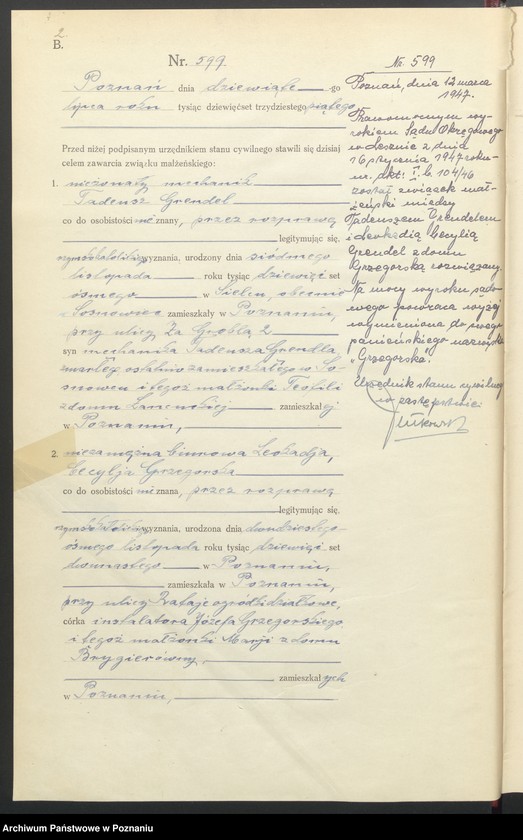 2
B.
Nr. 599.
Poznań, dnia dziewiąte -go
lipca roku tysiąc dziewięćset trzydziestego piątego
Przed niżej podpisanym urzędnikiem stanu cywilnego stawili się dzisiaj
celem zawarcia związku małżeńskiego:
1. nieżonaty mechanik
Tadeusz Grendel
co do osobistości nieznany, przez rozprawę
legitymując się,
rzymskokatolickiego wyznania, urodzony dnia siódmego
listopada roku tysiąc dziewięć set
ósmego w Sielcu, obecnie
Sosnowiec zamieszkały w Poznaniu,
przy ulicy Za Groblą 2
syn mechanika Tadeusza Grendla,
zmarłego ostatnio zamieszkałego w So-
snowcu i tegoż małżonki Teofili
z domu zamieszkałej
w Poznaniu,
2. niezamężna biurowa Leokadja,
Cecylja Grzegorska
co do osobistości nieznana, przez rozprawę
legitymując się,
rzymskokatolickiego wyznania, urodzona dnia dwudziestego
ósmego listopada roku tysiąc dziewięć set
dwunastego w Poznaniu,
zamieszkała w Poznaniu,
przy ulicy Rataje ogródki działkowe,
córka instalatora Józefa Grzegorskiego
i tegoż małżonki Marji z domu
Brygierówny,
zamieszkałych
w Poznaniu,
Nr. 599
Poznań, dnia 12 marca
1947.
Prawomocnym wy-
rokiem Sądu Okręgowego
w Lesznie z dnia
16 stycznia 1947 roku
nr. akt: I. C. 104/46
został związek mał-
żeński między
Tadeuszem Grendelem
i Leokadią Cecylią
Grendel z domu
Grzegorską rozwiązany.
Na mocy wyroku sądo-
wego powraca wyżej
wymieniona do swego
panieńskiego nazwiska
"Grzegorska".
Urzędnik stanu cywilnego
w zastępstwie
Archiwum Państwowe w Poznaniu